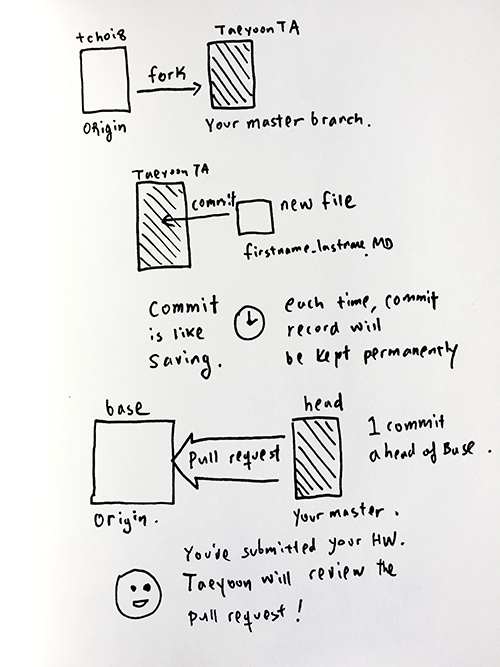 tchoi8
TaeyoonTA
fork
Origin
Your master branch.
Taeyoon TA
commit
new file
firstname_lastname.MD
Commit
is like
saving.
each time, commit
record will
be kept permanently
base
head
pull request
1 commit
ahead of Base.
Origin.
Your master.
You've submitted your HW.
Taeyoon will review the
pull request!